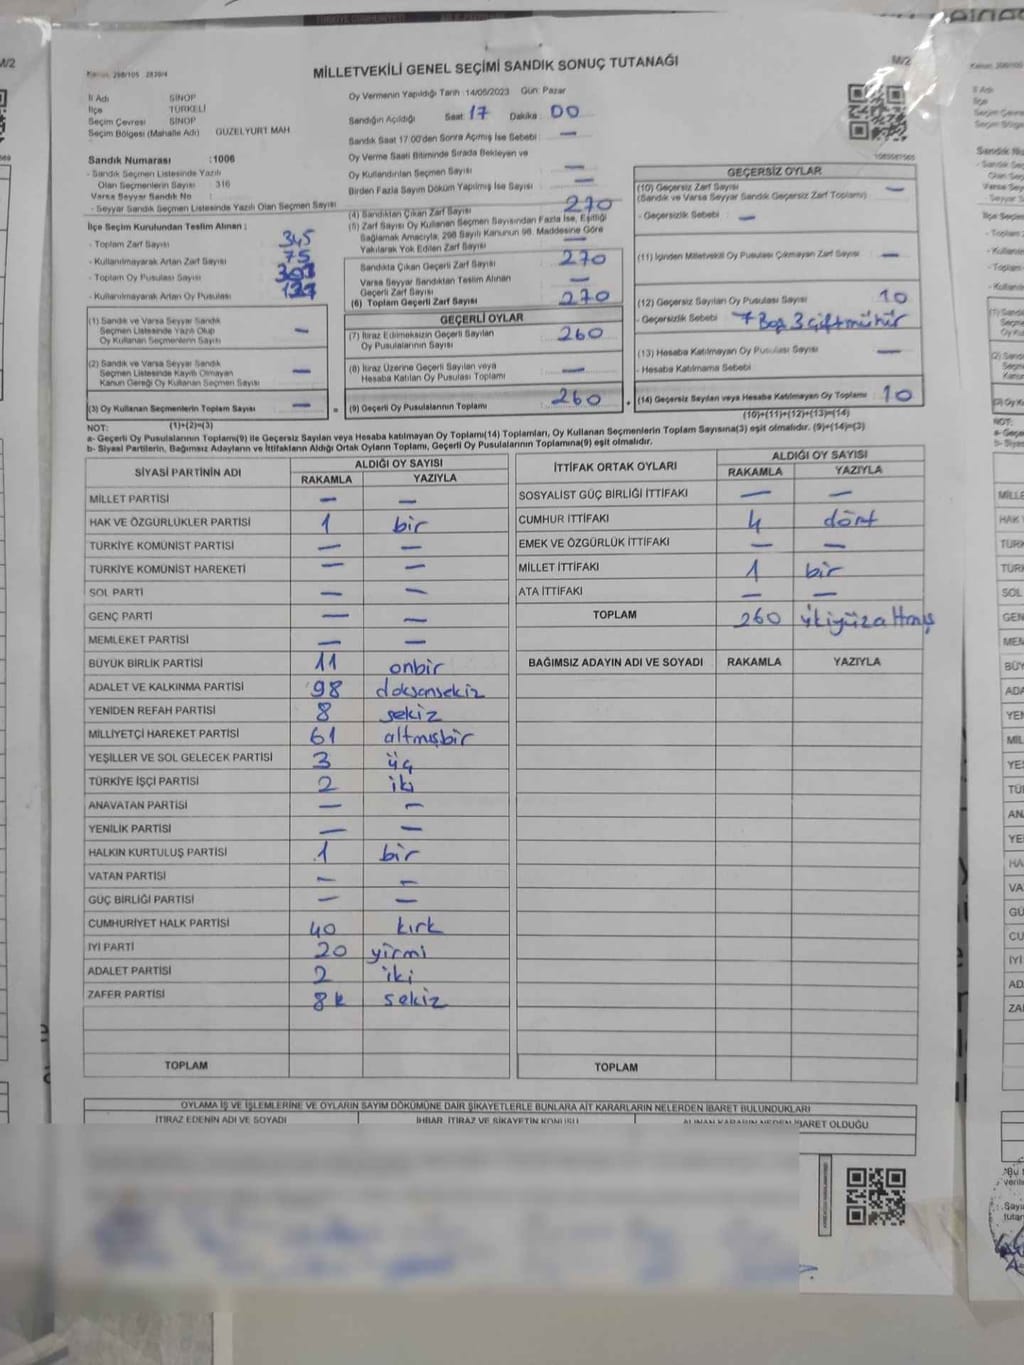 MİLLETVEKİLİ GENEL SEÇİMİ SANDIK SONUÇ TUTANAĞI
M/2
İl Adı SİNOP
İlçe TÜRKELİ
Seçim Çevresi SİNOP
Seçim Bölgesi (Mahalle Adı) GÜZELYURT MAH.
Sandık Numarası :1006
- Sandık Seçmen Listesinde Yazılı
Olan Seçmenlerin Sayısı 316
Varsa Seyyar Sandık No
- Seyyar Sandık Seçmen Listesinde Yazılı Olan Seçmen Sayısı
İlçe Seçim Kurulundan Teslim Alınan :
- Toplam Zarf Sayısı 345
- Kullanılmayarak Artan Zarf Sayısı 75
- Toplam Oy Pusulası Sayısı
- Kullanılmayarak Artan Oy Pusulası
(1) Sandık ve Varsa Seyyar Sandık
Seçmen Listesinde Yazılı Olup
Oy Kullanan Seçmenlerin Sayısı —
(2) Sandık ve Varsa Seyyar Sandık
Seçmen Listesinde Kayıtlı Olmayan
Kanun Gereği Oy Kullanan Seçmen Sayısı —
(3) Oy Kullanan Seçmenlerin Toplam Sayısı —
(1)+(2)=(3)
Oy Vermenin Yapıldığı Tarih :14/05/2023 Gün: Pazar
Sandığın Açıldığı Saat 17 Dakika : 00
Sandık Saat 17:00'den Sonra Açılmış İse Sebebi : —
Oy Verme Saati Bitiminde Sırada Bekleyen ve
Oy Kullandırılan Seçmen Sayısı —
Birden Fazla Sayım Döküm Yapılmış İse Sayısı —
(4) Sandıktan Çıkan Zarf Sayısı 270
(5) Zarf Sayısı Oy Kullanan Seçmen Sayısından Fazla İse, Eşitliği
Sağlamak Amacıyla, 298 Sayılı Kanunun 98. Maddesine Göre
Yakılarak Yok Edilen Zarf Sayısı —
Sandıkta Çıkan Geçerli Zarf Sayısı 270
Varsa Seyyar Sandıktan Teslim Alınan
Geçerli Zarf Sayısı —
(6) Toplam Geçerli Zarf Sayısı 270
GEÇERLİ OYLAR
(7) İtiraz Edilmeksizin Geçerli Sayılan
Oy Pusulalarının Sayısı 260
(8) İtiraz Üzerine Geçerli Sayılan veya
Hesaba Katılan Oy Pusulası Toplamı —
(9) Geçerli Oy Pusulalarının Toplamı 260
GEÇERSİZ OYLAR
(10) Geçersiz Zarf Sayısı —
(Sandık ve Varsa Seyyar Sandık Geçersiz Zarf Toplamı)
- Geçersizlik Sebebi : —
(11) İçinden Milletvekili Oy Pusulası Çıkmayan Zarf Sayısı —
(12) Geçersiz Sayılan Oy Pusulası Sayısı 10
- Geçersizlik Sebebi 7 Boş 3 Çift mühür
(13) Hesaba Katılmayan Oy Pusulası Sayısı —
- Hesaba Katılmama Sebebi
(14) Geçersiz Sayılan veya Hesaba Katılmayan Oy Toplamı : 10
(10)+(11)+(12)+(13)=(14)
NOT:
a- Geçerli Oy Pusulalarının Toplamı(9) ile Geçersiz Sayılan veya Hesaba katılmayan Oy Toplamı(14) Toplamları, Oy Kullanan Seçmenlerin Toplam Sayısına(3) eşit olmalıdır. (9)+(14)=(3)
b- Siyasi Partilerin, Bağımsız Adayların ve İttifakların Aldığı Ortak Oyların Toplamı, Geçerli Oy Pusulalarının Toplamına(9) eşit olmalıdır.
SİYASİ PARTİNİN ADI ALDIĞI OY SAYISI
RAKAMLA YAZIYLA
MİLLET PARTİSİ — —
HAK VE ÖZGÜRLÜKLER PARTİSİ 1 bir
TÜRKİYE KOMÜNİST PARTİSİ — —
TÜRKİYE KOMÜNİST HAREKETİ — —
SOL PARTİ — —
GENÇ PARTİ — —
MEMLEKET PARTİSİ — —
BÜYÜK BİRLİK PARTİSİ 11 onbir
ADALET VE KALKINMA PARTİSİ 98 doksansekiz
YENİDEN REFAH PARTİSİ 8 sekiz
MİLLİYETÇİ HAREKET PARTİSİ 61 altmışbir
YEŞİLLER VE SOL GELECEK PARTİSİ 3 üç
TÜRKİYE İŞÇİ PARTİSİ 2 iki
ANAVATAN PARTİSİ — —
YENİLİK PARTİSİ — —
HALKIN KURTULUŞ PARTİSİ 1 bir
VATAN PARTİSİ — —
GÜÇ BİRLİĞİ PARTİSİ — —
CUMHURİYET HALK PARTİSİ 40 kırk
İYİ PARTİ 20 yirmi
ADALET PARTİSİ 2 iki
ZAFER PARTİSİ 8 sekiz
TOPLAM
İTTİFAK ORTAK OYLARI ALDIĞI OY SAYISI
RAKAMLA YAZIYLA
SOSYALİST GÜÇ BİRLİĞİ İTTİFAKI — —
CUMHUR İTTİFAKI 4 dört
EMEK VE ÖZGÜRLÜK İTTİFAKI — —
MİLLET İTTİFAKI 1 bir
ATA İTTİFAKI — —
TOPLAM 260 ikiyüzaltmış
BAĞIMSIZ ADAYIN ADI VE SOYADI RAKAMLA YAZIYLA
TOPLAM
OYLAMA İŞ VE İŞLEMLERİNE VE OYLARIN SAYIM DÖKÜMÜNE DAİR ŞİKAYETLERLE BUNLARA AİT KARARLARIN NELERDEN İBARET BULUNDUKLARI
İTİRAZ EDENİN ADI VE SOYADI İHBAR, İTİRAZ VE ŞİKAYETİN KONUSU ALINAN KARARIN NEDEN İBARET OLDUĞU